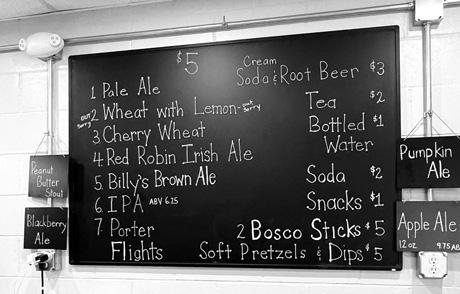 $5
1 Pale Ale
OUT Sorry 2 Wheat with Lemon - out Sorry
3 Cherry Wheat
4 Red Robin Irish Ale
5. Billy's Brown Ale
6. IPA ABV 6.25
7 Porter
Flights
Cream
Soda & Root Beer $3
Tea $2
Bottled $1
Water
Soda $2
Snacks $1
2 Bosco Sticks $5
Soft Pretzels & Dips $5
Peanut
Butter
Stout
Blackberry
Ale
Pumpkin
Ale
Apple Ale
12 OZ 9.75 ABV